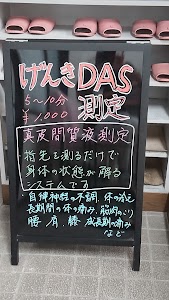 げんきDAS
5～10分
¥1,000
測定
真皮間質液測定
指先を測るだけで
身体の状態が解る
システムです
自律神経の不調、体の冷え
長期間の体の痛み、筋肉のこり
腰、肩、膝、成長期の痛み
など